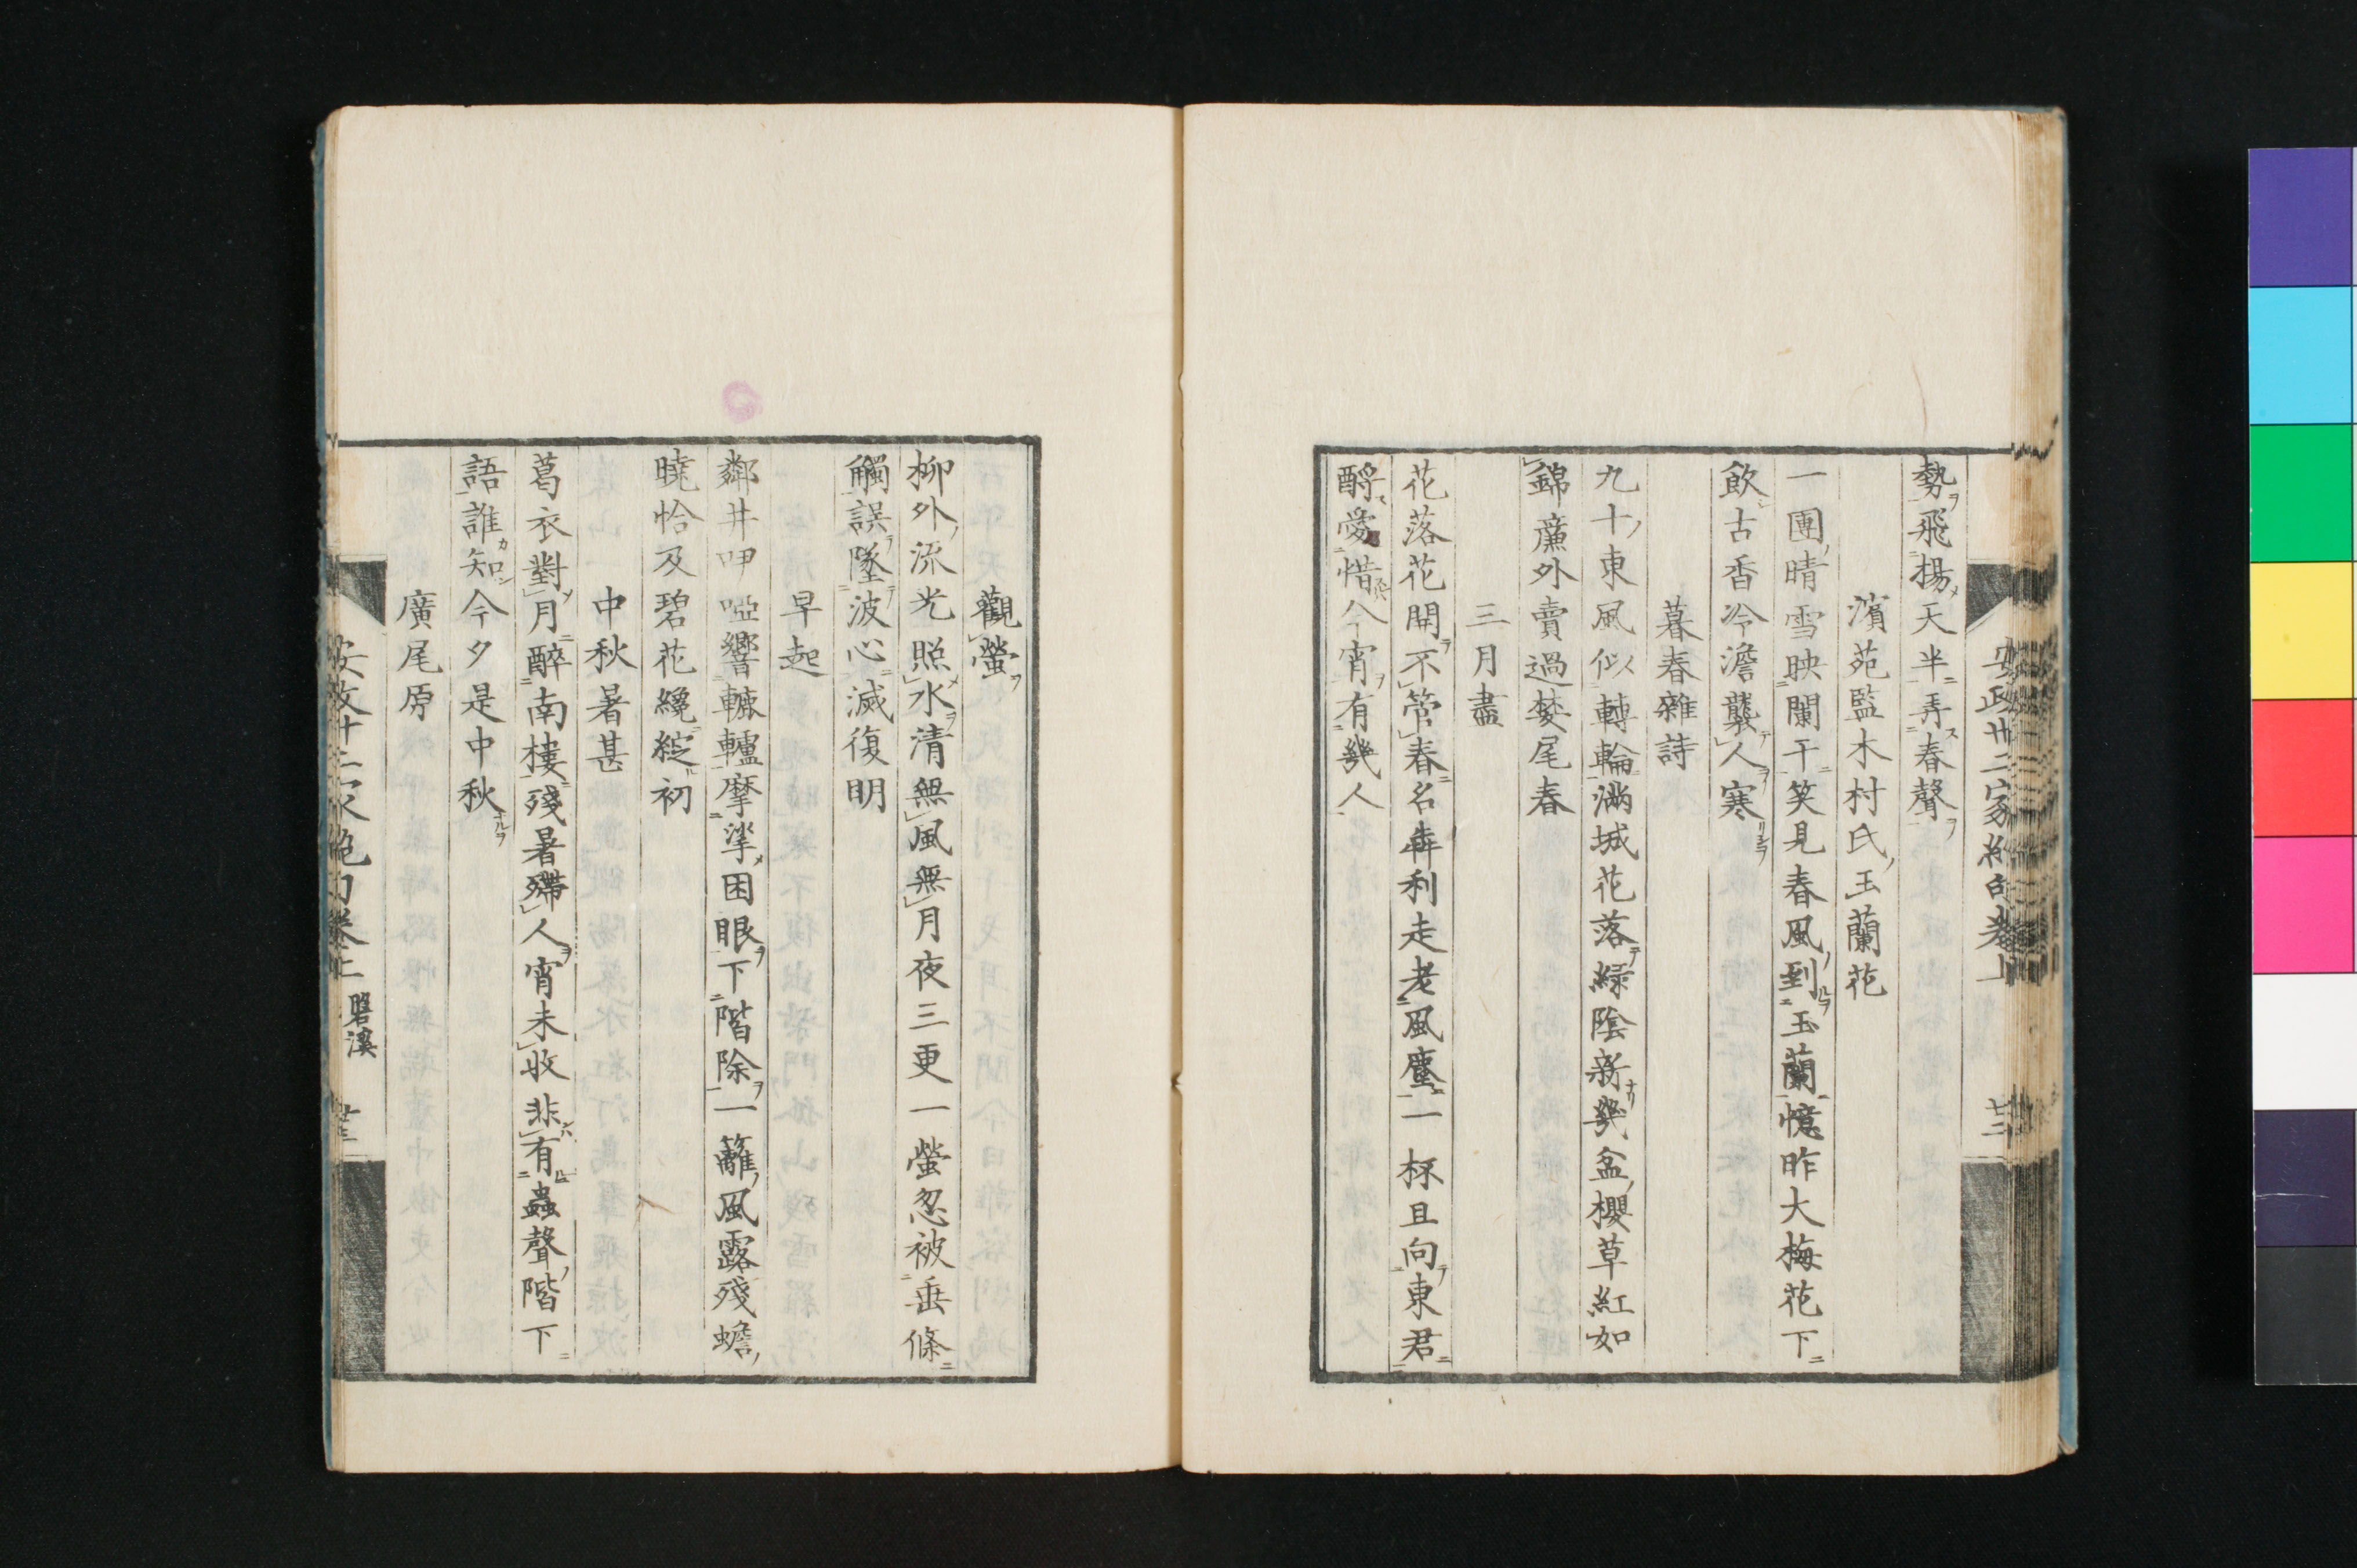 勢飛揚天半弄春聲
濱苑監木村氏玉蘭花
一團晴雪映闌干笑見春風到玉蘭憶昨大梅花下
飲古香冷澹襲人寒
暮春雜詩
九十東風似轉輪滿城花落綠陰新幾盆櫻草紅如
錦簾外賣過婪尾春
三月盡
花落花開不管春名犇利走老風塵一杯且向東君
酹愛惜今宵有幾人
安政廿二家絶句卷上
觀螢
柳外流光照水清無風無月夜三更一螢忽被垂條
觸誤墜波心滅復明
早起
鄰井呷啞響轆轤摩挲困眼下階除一籬風露殘蟾
曉恰及碧花纔綻初
中秋暑甚
葛衣對月醉南樓殘暑殢人宵未收非有蟲聲階下
語誰知今夕是中秋
廣尾原
安政廿二家絶句卷上 磐溪